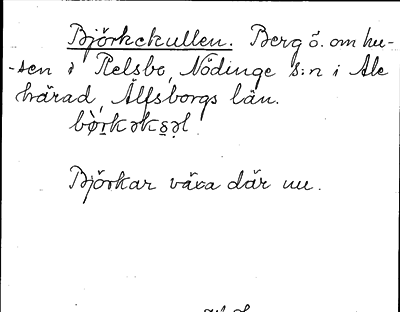 Björkekullen. Berg ö. om hu-
-sen i Relsbo, Nödinge s:n i Ale
härad, Älfsborgs län.
Björkar växa där nu.